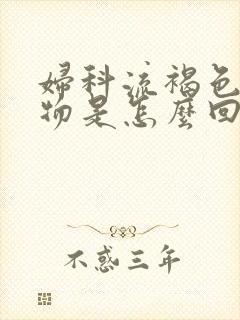 婦科流褐色
物是怎麼回
不惑三年